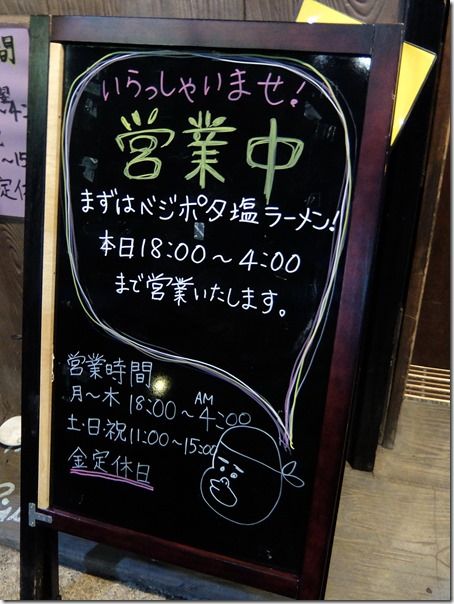 いらっしゃいませ!
営業中
まずはベジポタ塩ラーメン!
本日18:00〜4:00
まで営業いたします。
営業時間
月〜木 18:00〜AM4:00
土・日祝 11:00〜15:00
金定休日
間
〜4:
〜15
定休